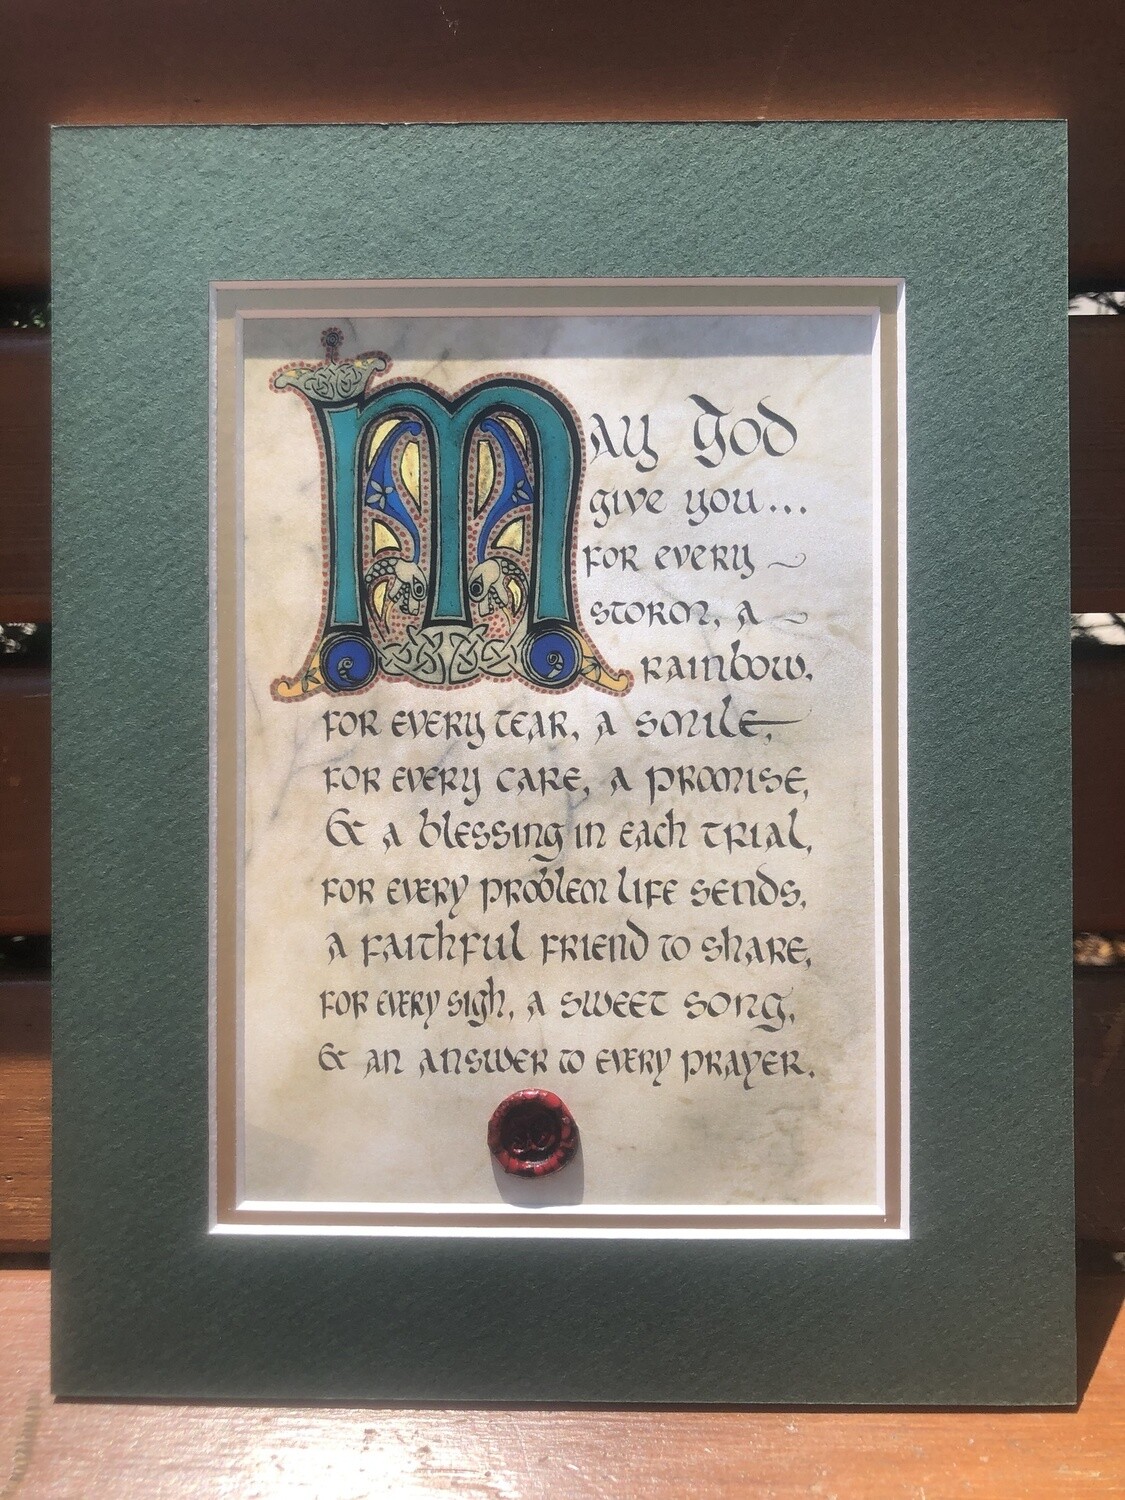 May God
give you...
for every ~
storm, a ~
rainbow,
for every tear, a smile,
for every care, a promise,
& a blessing in each trial,
for every problem life sends,
a faithful friend to share,
for every sigh, a sweet song,
& an answer to every prayer.